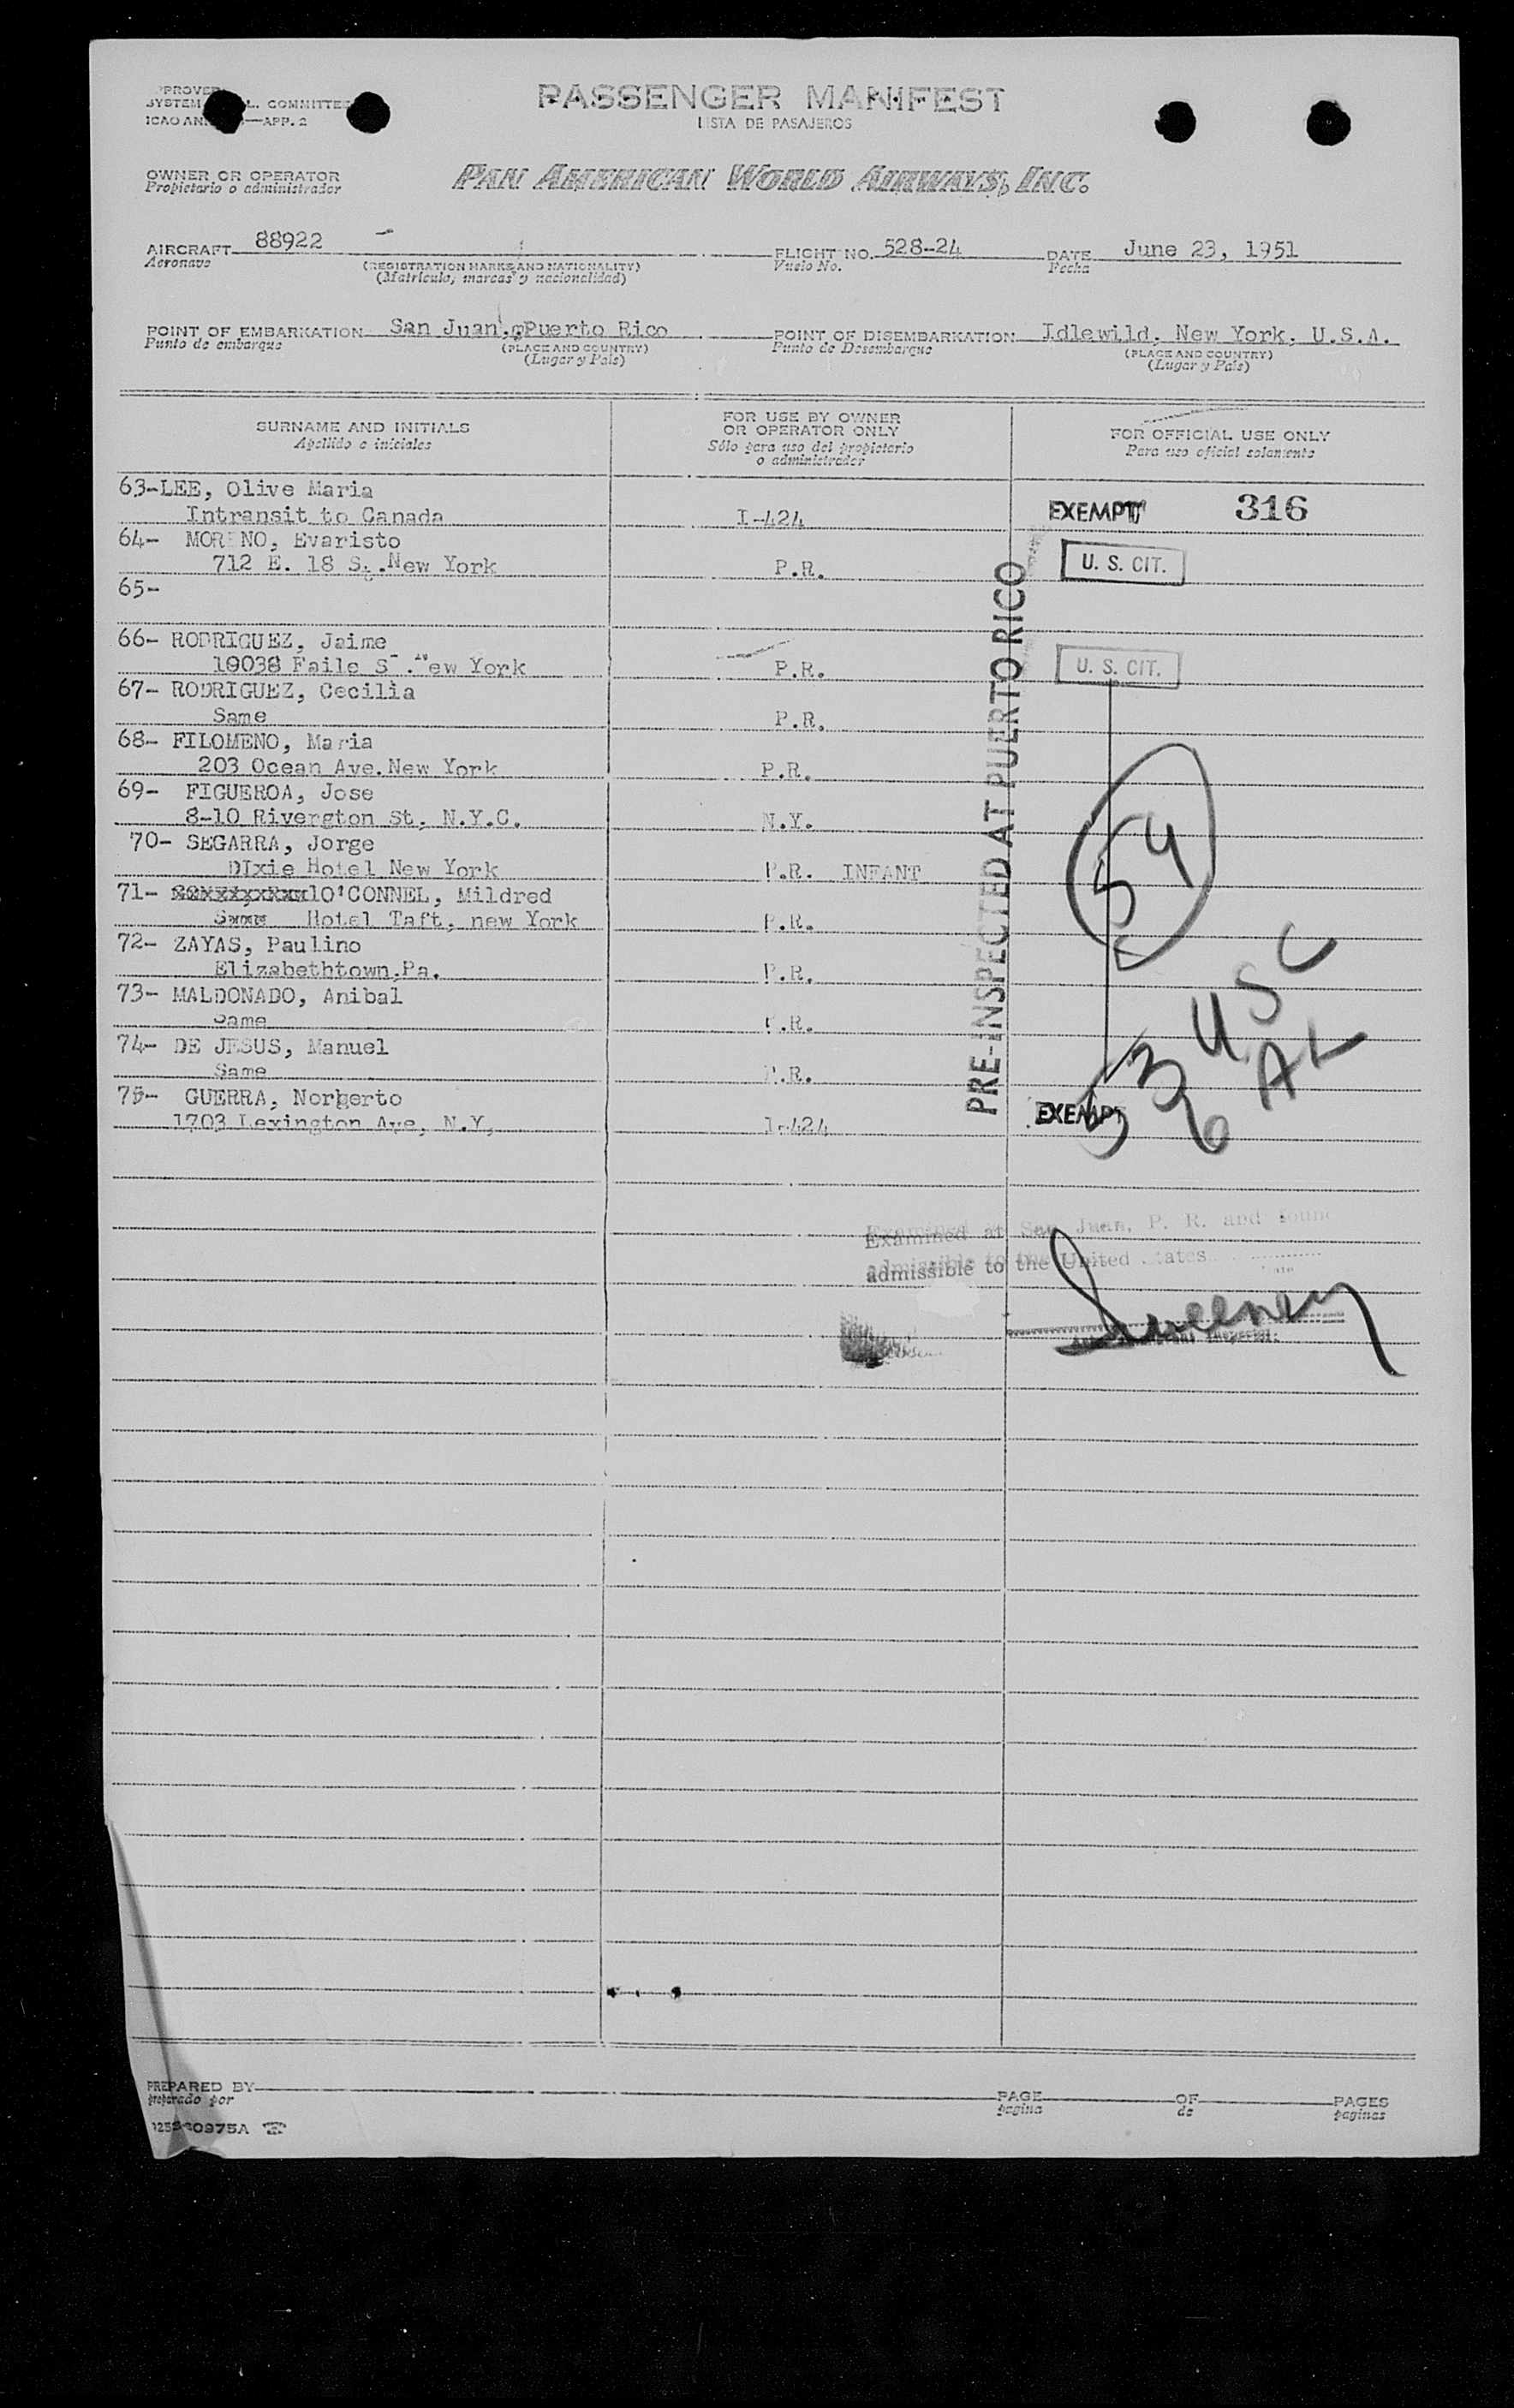 PASSENGER MANIFEST
LISTA DE PASAJEROS
COMMITTEE
—APP. 2
OWNER OR OPERATOR
Propietario o administrador
PAN AMERICAN WORLD AIRWAYS, INC.
AIRCRAFT 88922 FLIGHT NO. 528-24 DATE June 23, 1951
Aeronave (REGISTRATION MARKS AND NATIONALITY) Vuelo No. Fecha
(Matricula, marcas y nacionalidad)
POINT OF EMBARKATION San Juan, Puerto Rico POINT OF DISEMBARKATION Idlewild, New York, U.S.A.
Punto de embarque (PLACE AND COUNTRY) Punto de Desembarque (PLACE AND COUNTRY)
(Lugar y Pais) (Lugar y Pais)
SURNAME AND INITIALS FOR USE BY OWNER OR OPERATOR ONLY FOR OFFICIAL USE ONLY
Apellido e iniciales Sólo para uso del propietario o administrador Para uso oficial solamente
63-LEE, Olive Maria
Intransit to Canada I-424 EXEMPT 316
64- MORENO, Evaristo
712 E. 18 S. New York P.R. U. S. CIT.
65-
66- RODRIGUEZ, Jaime
Faile S. New York P.R. U. S. CIT.
67- RODRIGUEZ, Cecilia
Same P.R.
68- FILOMENO, Maria
203 Ocean Ave. New York P.R.
69- FIGUEROA, Jose
8-10 Rivergton St, N.Y.C. N.Y.
70- SEGARRA, Jorge
DIxie Hotel New York P.R. INFANT
71- O'CONNEL, Mildred
Hotel Taft, new York P.R.
72- ZAYAS, Paulino
Elizabethtown,Pa. P.R.
73- MALDONADO, Anibal
Same P.R.
74- DE JESUS, Manuel
Same P.R.
75- GUERRA, Norberto
1703 Lexington Ave, N.Y, I-424 EXEMPT
PRE-INSPECTED AT PUERTO RICO
54
53 USC
6 AL
Examined at San Juan, P. R. and found
admissible to the United States
Sweeney
Inspector
PREPARED BY PAGE OF PAGES
preparado por pagina de paginas